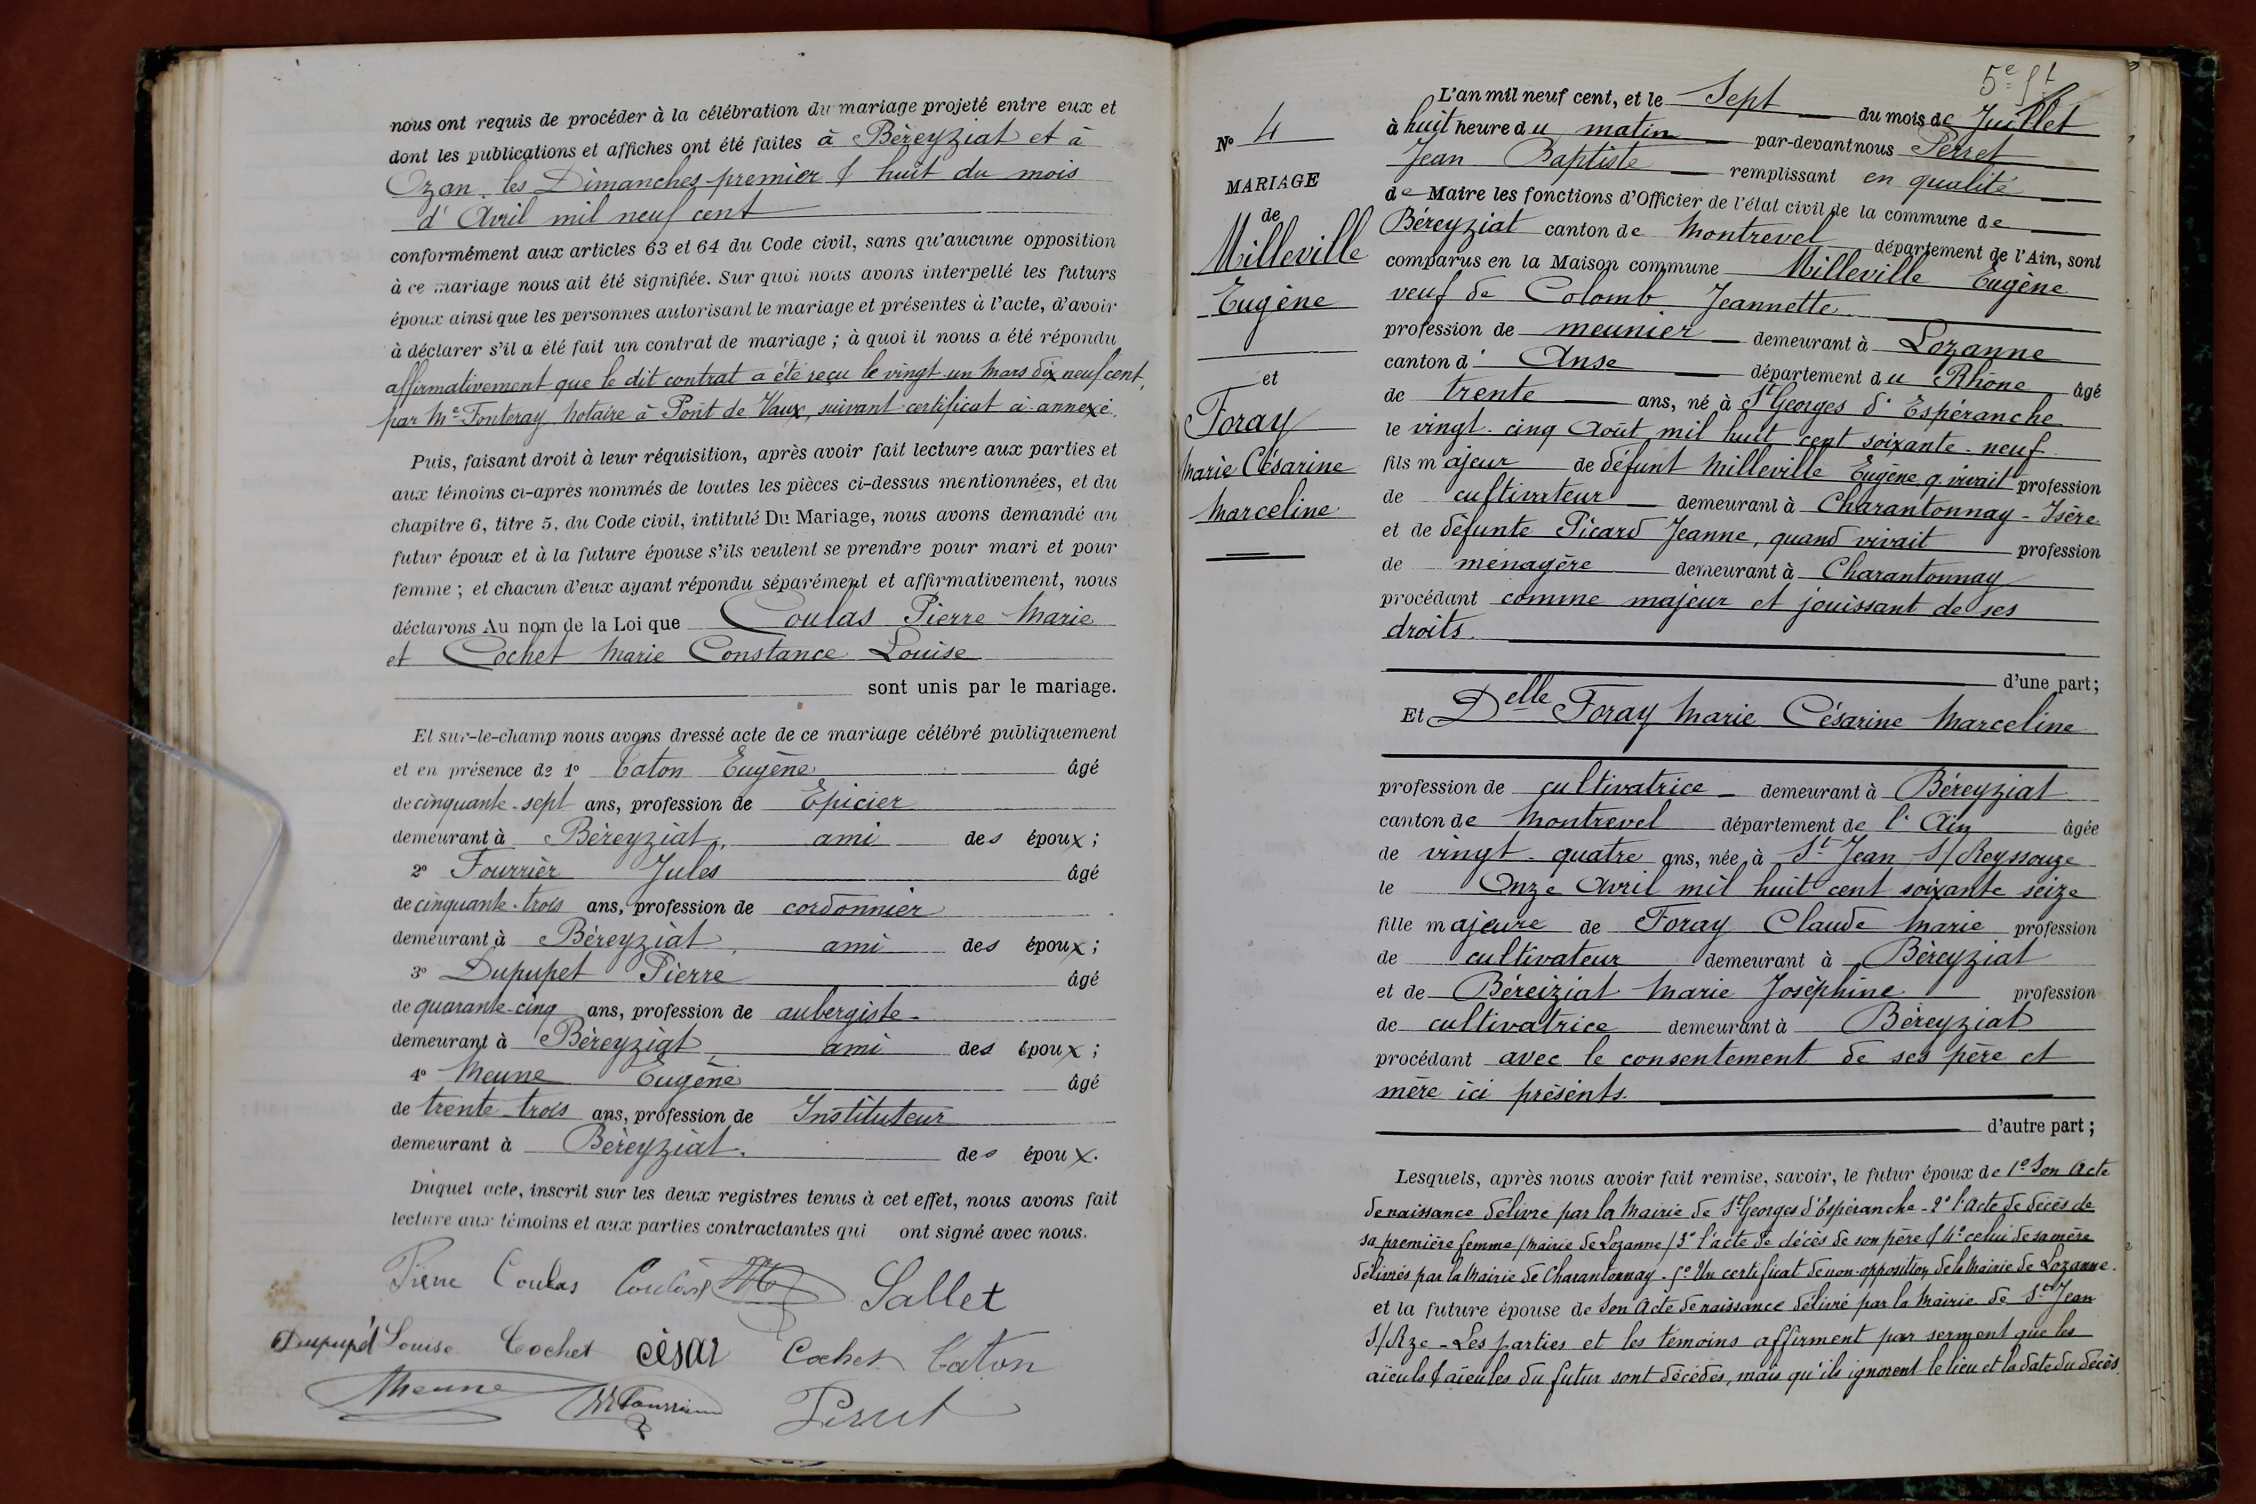 nous ont requis de procéder à la célébration du mariage projeté entre eux et
dont les publications et affiches ont été faites à Béreyziat et à
Ozan les Dimanches premier & huit du mois
d'Avril mil neuf cent
conformément aux articles 63 et 64 du Code civil, sans qu'aucune opposition
à ce mariage nous ait été signifiée. Sur quoi nous avons interpellé les futurs
époux ainsi que les personnes autorisant le mariage et présentes à l'acte, d'avoir
à déclarer s'il a été fait un contrat de mariage ; à quoi il nous a été répondu
affirmativement que le dit contrat a été reçu le vingt-un Mars dix neuf cent,
par Me Fonteray notaire à Pont de Vaux, suivant certificat ci-annexé.
Puis, faisant droit à leur réquisition, après avoir fait lecture aux parties et
aux témoins ci-après nommés de toutes les pièces ci-dessus mentionnées, et du
chapitre 6, titre 5, du Code civil, intitulé Du Mariage, nous avons demandé au
futur époux et à la future épouse s'ils veulent se prendre pour mari et pour
femme ; et chacun d'eux ayant répondu séparément et affirmativement, nous
déclarons Au nom de la Loi que Coulas Pierre Marie
et Cochet Marie Constance Louise
sont unis par le mariage.
Et sur-le-champ nous avons dressé acte de ce mariage célébré publiquement
et en présence de 1° Caton Eugène âgé
de cinquante-sept ans, profession de Epicier
demeurant à Béreyziat, ami des époux ;
2° Fourrier Jules âgé
de cinquante-trois ans, profession de cordonnier
demeurant à Béreyziat, ami des époux ;
3° Dupupet Pierre âgé
de quarante-cinq ans, profession de aubergiste
demeurant à Béreyziat, ami des époux ;
4° Meune Eugène âgé
de trente-trois ans, profession de Instituteur
demeurant à Béreyziat. des époux.
Duquel acte, inscrit sur les deux registres tenus à cet effet, nous avons fait
lecture aux témoins et aux parties contractantes qui ont signé avec nous.
Pierre Coulas Sallet
Dupupet Louise Cochet César Cochet Caton
Meune Fourrier Perret
5e ft
N° 4
MARIAGE
de
Milleville
Eugène
et
Foray
Marie Césarine
Marceline
L'an mil neuf cent, et le Sept du mois de Juillet
à huit heure du matin par-devant nous Perret
Jean Baptiste remplissant en qualité
de Maire les fonctions d'Officier de l'état civil de la commune de
Béreyziat canton de Montrevel département de l'Ain, sont
comparus en la Maison commune Milleville Eugène
veuf de Colomb Jeannette
profession de meunier demeurant à Lozanne
canton d' Anse département du Rhône âgé
de trente ans, né à St Georges d'Espéranche
le vingt-cinq Août mil huit cent soixante-neuf
fils majeur de défunt Milleville Eugène q. vivait profession
de cultivateur demeurant à Charantonnay - Isère
et de défunte Picard Jeanne, quand vivait profession
de ménagère demeurant à Charantonnay
procédant comme majeur et jouissant de ses
droits.
d'une part ;
Et Delle Foray Marie Césarine Marceline
profession de cultivatrice demeurant à Béreyziat
canton de Montrevel département de l'Ain âgée
de vingt-quatre ans, née à St Jean S/Reyssouze
le Onze Avril mil huit cent soixante seize
fille majeure de Foray Claude Marie profession
de cultivateur demeurant à Béreyziat
et de Béreiziat Marie Joséphine profession
de cultivatrice demeurant à Béreyziat
procédant avec le consentement de ses père et
mère ici présents.
d'autre part ;
Lesquels, après nous avoir fait remise, savoir, le futur époux de 1° Son Acte
de naissance délivré par la Mairie de St Georges d'Espéranche - 2° l'Acte de décès de
sa première femme (Mairie de Lozanne) 3° l'acte de décès de son père & 4° celui de sa mère
délivrés par la Mairie de Charantonnay. 5° Un certificat de non-opposition de la Mairie de Lozanne.
et la future épouse de Son Acte de naissance délivré par la Mairie de St Jean
S/Rze - Les parties et les témoins affirment par serment que les
aïeuls & aïeules du futur sont décédés, mais qu'ils ignorent le lieu et la date du décès.